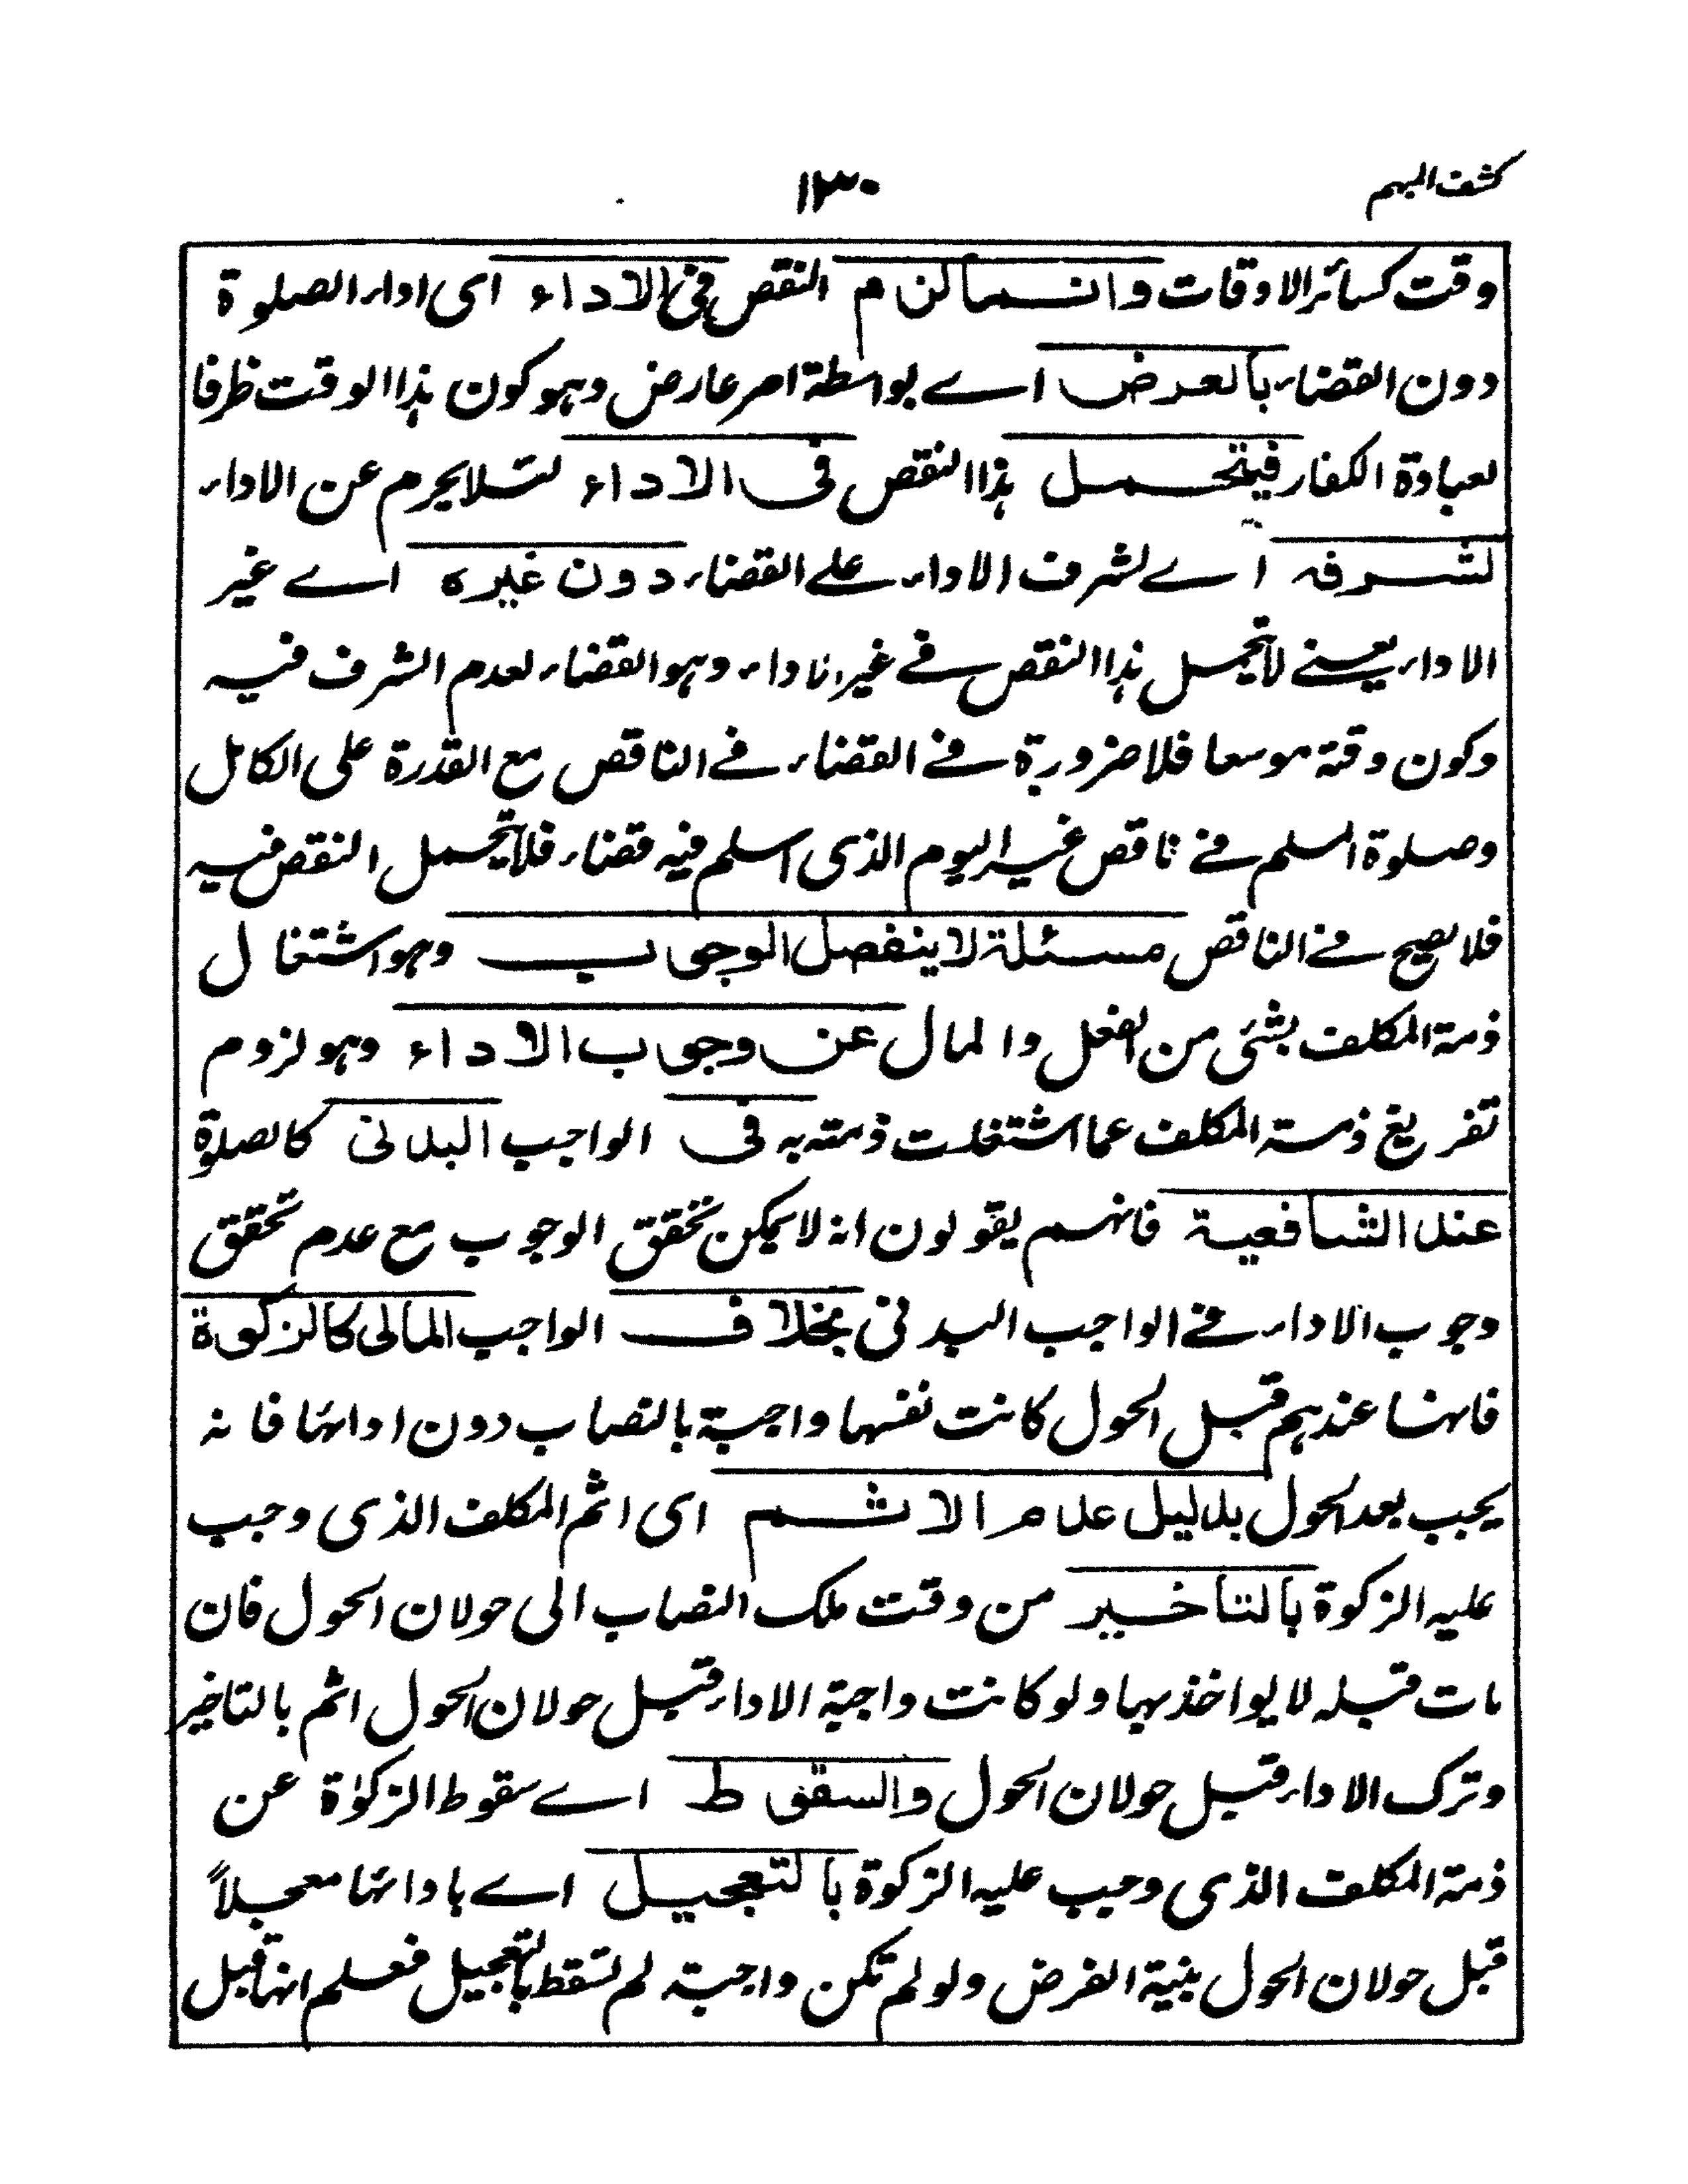 كشف المبهم
١٣٠
وقت كسائر الاوقات وانما لزم النقص فى الاداء اى اداء الصلوة
دون القضاء بالعرض اے بواسطة امر عارض وهو كون هذا الوقت ظرفا
لعبادة الكفار فيتحمل هذا النقص فى الاداء لئلا يحرم عن الاداء
لشرفه اے لشرف الاداء علے القضاء دون غيره اے غير
الاداء يعنے لا يتحمل هذا النقص فے غير الاداء وهو القضاء لعدم الشرف فيه
وكون وقته موسعا فلا ضرورة فے القضاء فے الناقص مع القدرة على الكامل
وصلوة المسلم فے ناقص غير اليوم الذى اسلم فيه قضاء فلا يتحمل النقص فيه
فلا يصح فے الناقص مسئلة لا ينفصل الوجوب وهو اشتغال
ذمة المكلف بشئى من الفعل والمال عن وجوب الاداء وهو لزوم
تفريغ ذمة المكلف عما اشتغلت ذمته به فى الواجب البدنى كالصلوة
عند الشافعية فانهم يقولون انه لا يمكن تحقق الوجوب مع عدم تحقق
وجوب الاداء فے الواجب البدنى بخلاف الواجب المالى كالزكوة
فانها عندهم قبل الحول كانت نفسها واجبة بالنصاب دون ادائها فانه
يجب بعد الحول بدليل عدم الاثم اى اثم المكلف الذى وجب
عليه الزكوة بالتاخير من وقت ملك النصاب الى حولان الحول فان
مات قبله لا يواخذ بها ولو كانت واجبة الاداء قبل حولان الحول اثم بالتاخير
وترك الاداء قبل حولان الحول والسقوط اے سقوط الزكوٰة عن
ذمة المكلف الذى وجب عليه الزكوة بالتعجيل اے بادائها معجلاً
قبل حولان الحول بنية الفرض ولو لم تكن واجبة لم تسقط بالتعجيل فعلم انها قبل